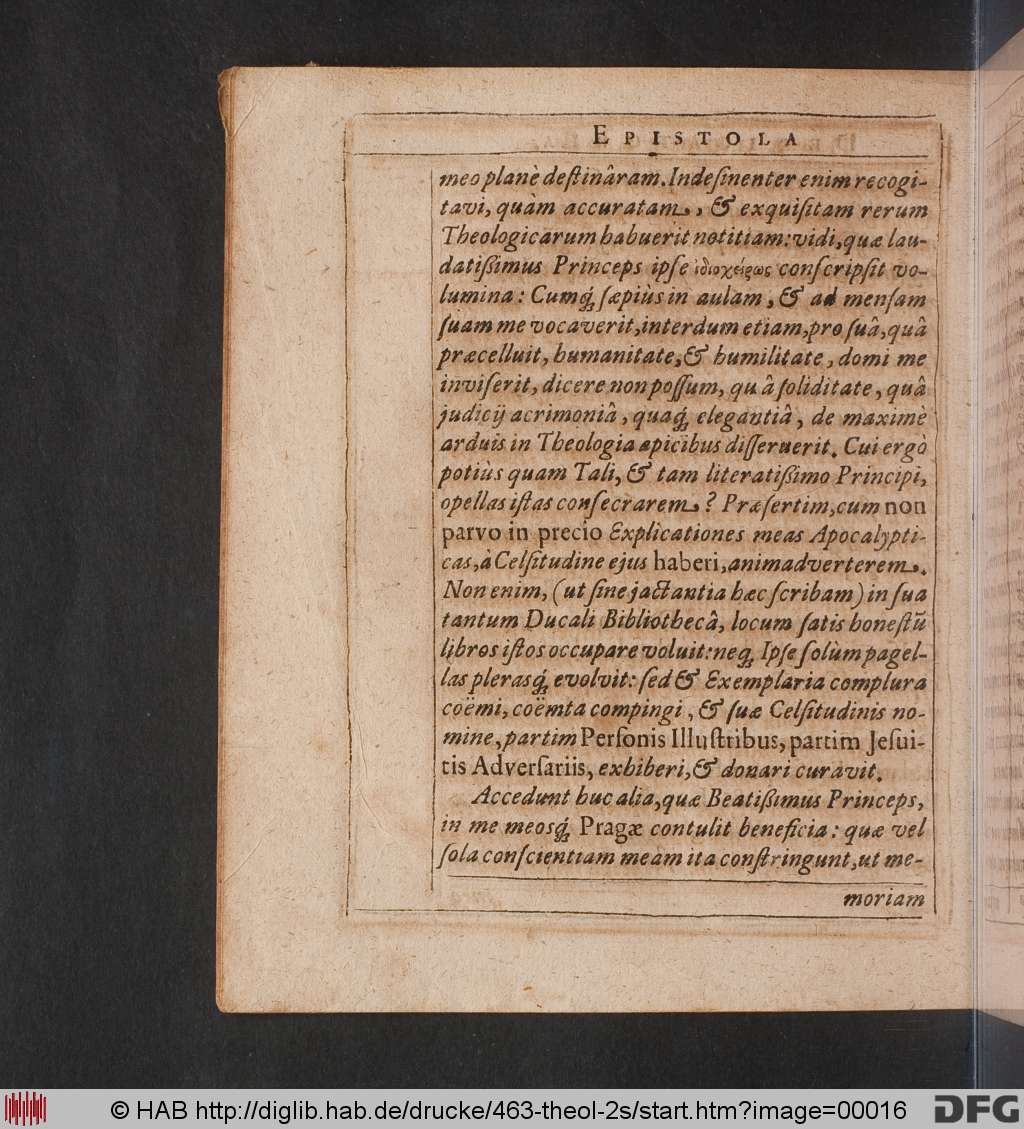 EPISTOLA
meo planè destinâram. Indesinenter enim recogi-
tavi, quàm accuratam, & exquisitam rerum
Theologicarum habuerit notitiam: vidi, quæ lau-
datißimus Princeps ipse ἰδιοχείρως conscripsit vo-
lumina: Cumq́; sæpiùs in aulam, & ad mensam
suam me vocaverit, interdum etiam, pro suâ, quâ
præcelluit, humanitate, & humilitate, domi me
inviserit, dicere non possum, quâ soliditate, quâ
judicij acrimoniâ, quaq́; elegantiâ, de maximè
arduis in Theologia apicibus disseruerit. Cui ergò
potiùs quam Tali, & tam literatißimo Principi,
opellas istas consecrarem? Præsertim, cum non
parvo in precio Explicationes meas Apocalypti-
cas, à Celsitudine ejus haberi, animadverterem.
Non enim, (ut sine jactantia hæc scribam) in sua
tantum Ducali Bibliothecâ, locum satis honestũ
libros istos occupare voluit: neq; Ipse solùm pagel-
las plerasq́; evolvit: sed & Exemplaria complura
coëmi, coëmta compingi, & suæ Celsitudinis no-
mine, partim Personis Illustribus, partim Jesui-
tis Adversariis, exhiberi, & donari curavit.
Accedunt huc alia, quæ Beatißimus Princeps,
in me meosq́; Pragæ contulit beneficia: quæ vel
sola conscientiam meam ita constringunt, ut me-
moriam
© HAB http://diglib.hab.de/drucke/463-theol-2s/start.htm?image=00016
DFG